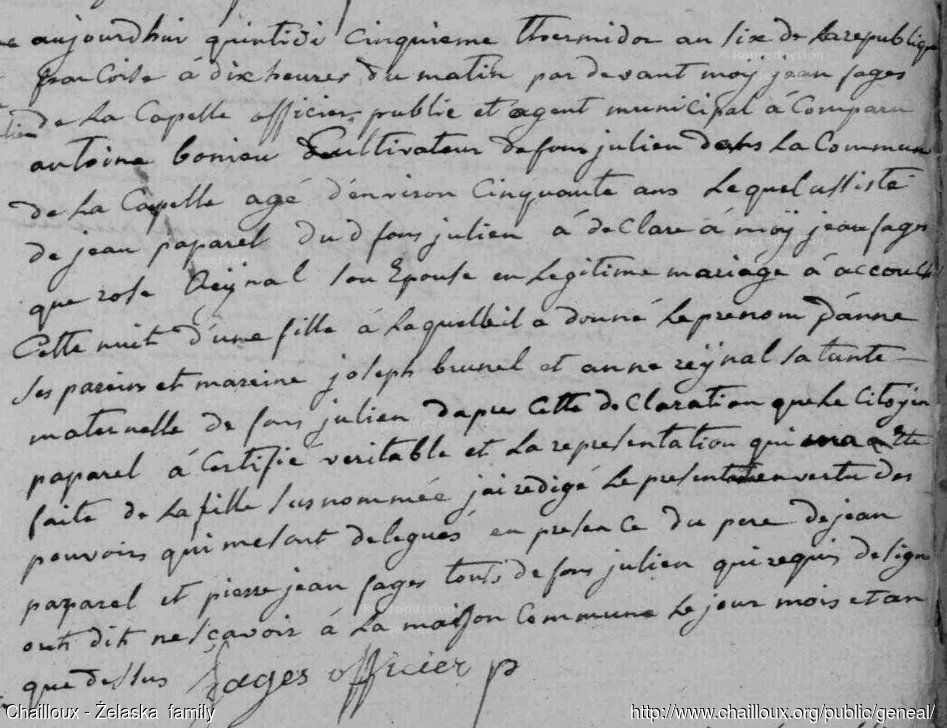 aujourdhui quintidi cinquieme thermidor an six de la republique
francoise á dix heures du matin par devant moy jean fages
de La Capelle officier public et agent municipal á Comparu
antoine bonieu Cultivateur de fons julien dans La Commune
de La Capelle agé d'environ Cinquante ans Lequel assisté
de jean paparel du d fons julien á deClaré á moÿ jean fages
que rose Reÿnal son Epouse en Legitime mariage á accouché
Cette nuit d'une fille á Laquelle il a donné Le prenom d'anne
ses parein et mareine joseph brunel et anne reÿnal sa tante
maternelle de fons julien dapres Cette deClaration que Le Citoyin
paparel á Certifie veritable et La representation qui ma ette
faite de La fille susnommée jai redigé Le present en vertu des
pouvoirs qui me sont delegués en presence du pere de jean
paparel et pierre jean fages touts de fons julien qui requis de signe
onts dit ne sçavoir á La maison Commune Le jour mois et an
que dessus fages officier p
Chailloux - Żelaska family
http://www.chailloux.org/public/geneal/